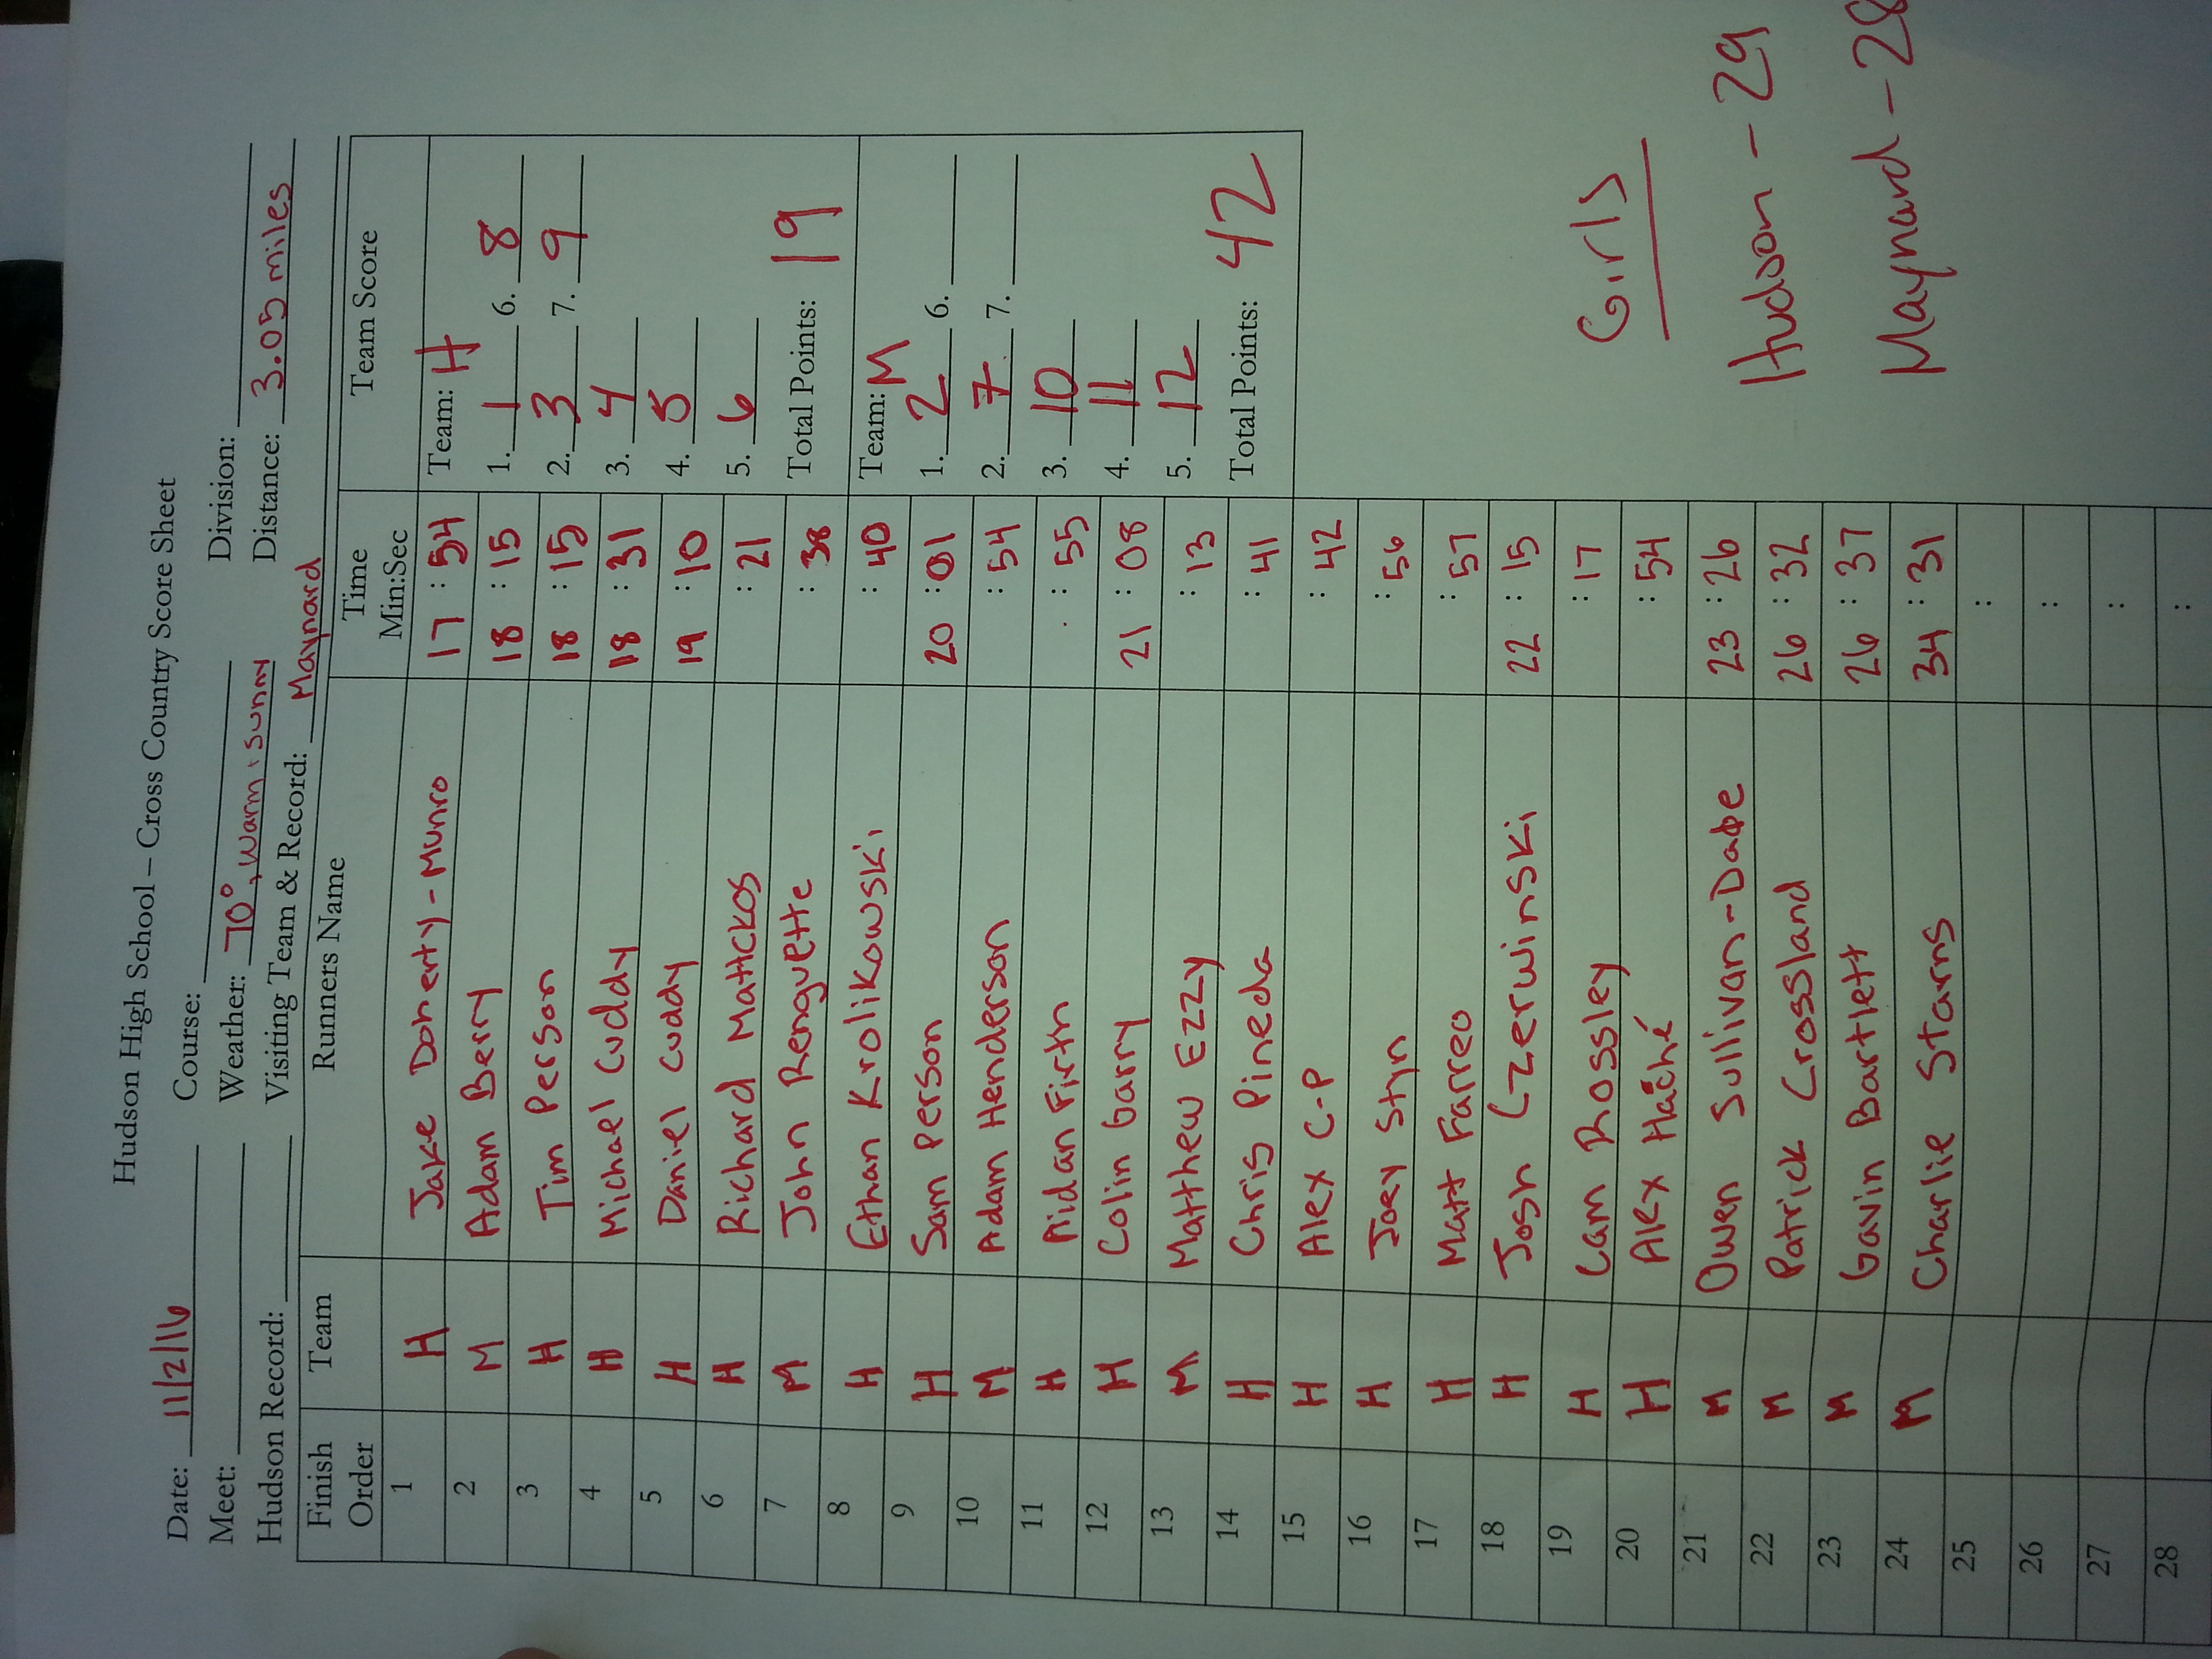 Hudson High School – Cross Country Score Sheet
Date: 11/2/16 Course: Division:
Meet: Weather: 70°, Warm & Sunny Distance: 3.05 miles
Hudson Record: Visiting Team & Record: Maynard
Finish Order Team Runners Name Time Min:Sec Team Score
1 H Jake Doherty-Munro 17:54
2 M Adam Berry 18:15
3 H Tim Person 18:15
4 H Michael Cuddy 18:31
5 H Daniel Cuddy 19:10
6 H Richard Mattckos :21
7 M John Renguette :38
8 H Ethan Krolikowski :40
9 H Sam Person 20:01
10 M Adam Henderson :54
11 H Aidan Firth :55
12 H Colin Garry 21:08
13 M Matthew Ezzy :13
14 H Chris Pineda :41
15 H Alex C-P :42
16 H Joey Styn :56
17 H Matt Farreo :57
18 H Josh Czerwinski 22:15
19 H Cam Rossley :17
20 H Alex Haché :54
21 M Owen Sullivan-Dabe 23:26
22 M Patrick Crossland 26:32
23 M Gavin Bartlett 26:37
24 M Charlie Starns 34:31
25 :
26 :
27 :
28 :
Team: H
1. 1 6. 8
2. 3 7. 9
3. 4
4. 5
5. 6
Total Points: 19
Team: M
1. 2 6.
2. 7 7.
3. 10
4. 11
5. 12
Total Points: 42
Girls
Hudson - 29
Maynard - 28